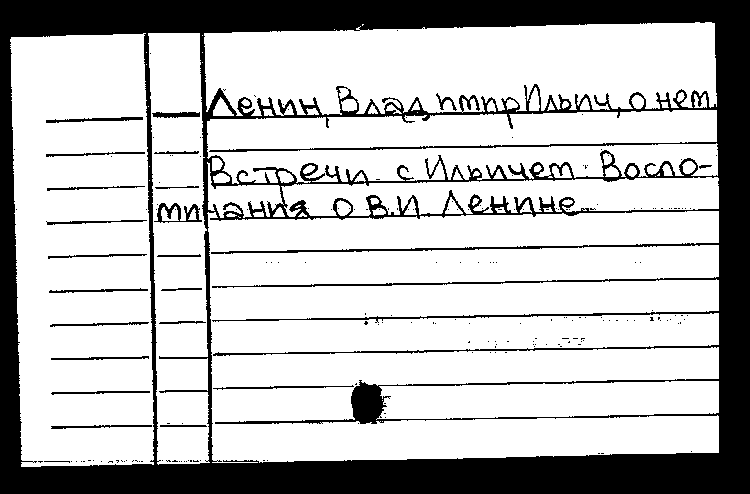 Ленин, Владимир Ильич, о нем.
Встречи с Ильичем. Воспо-
минания о В.И. Ленине